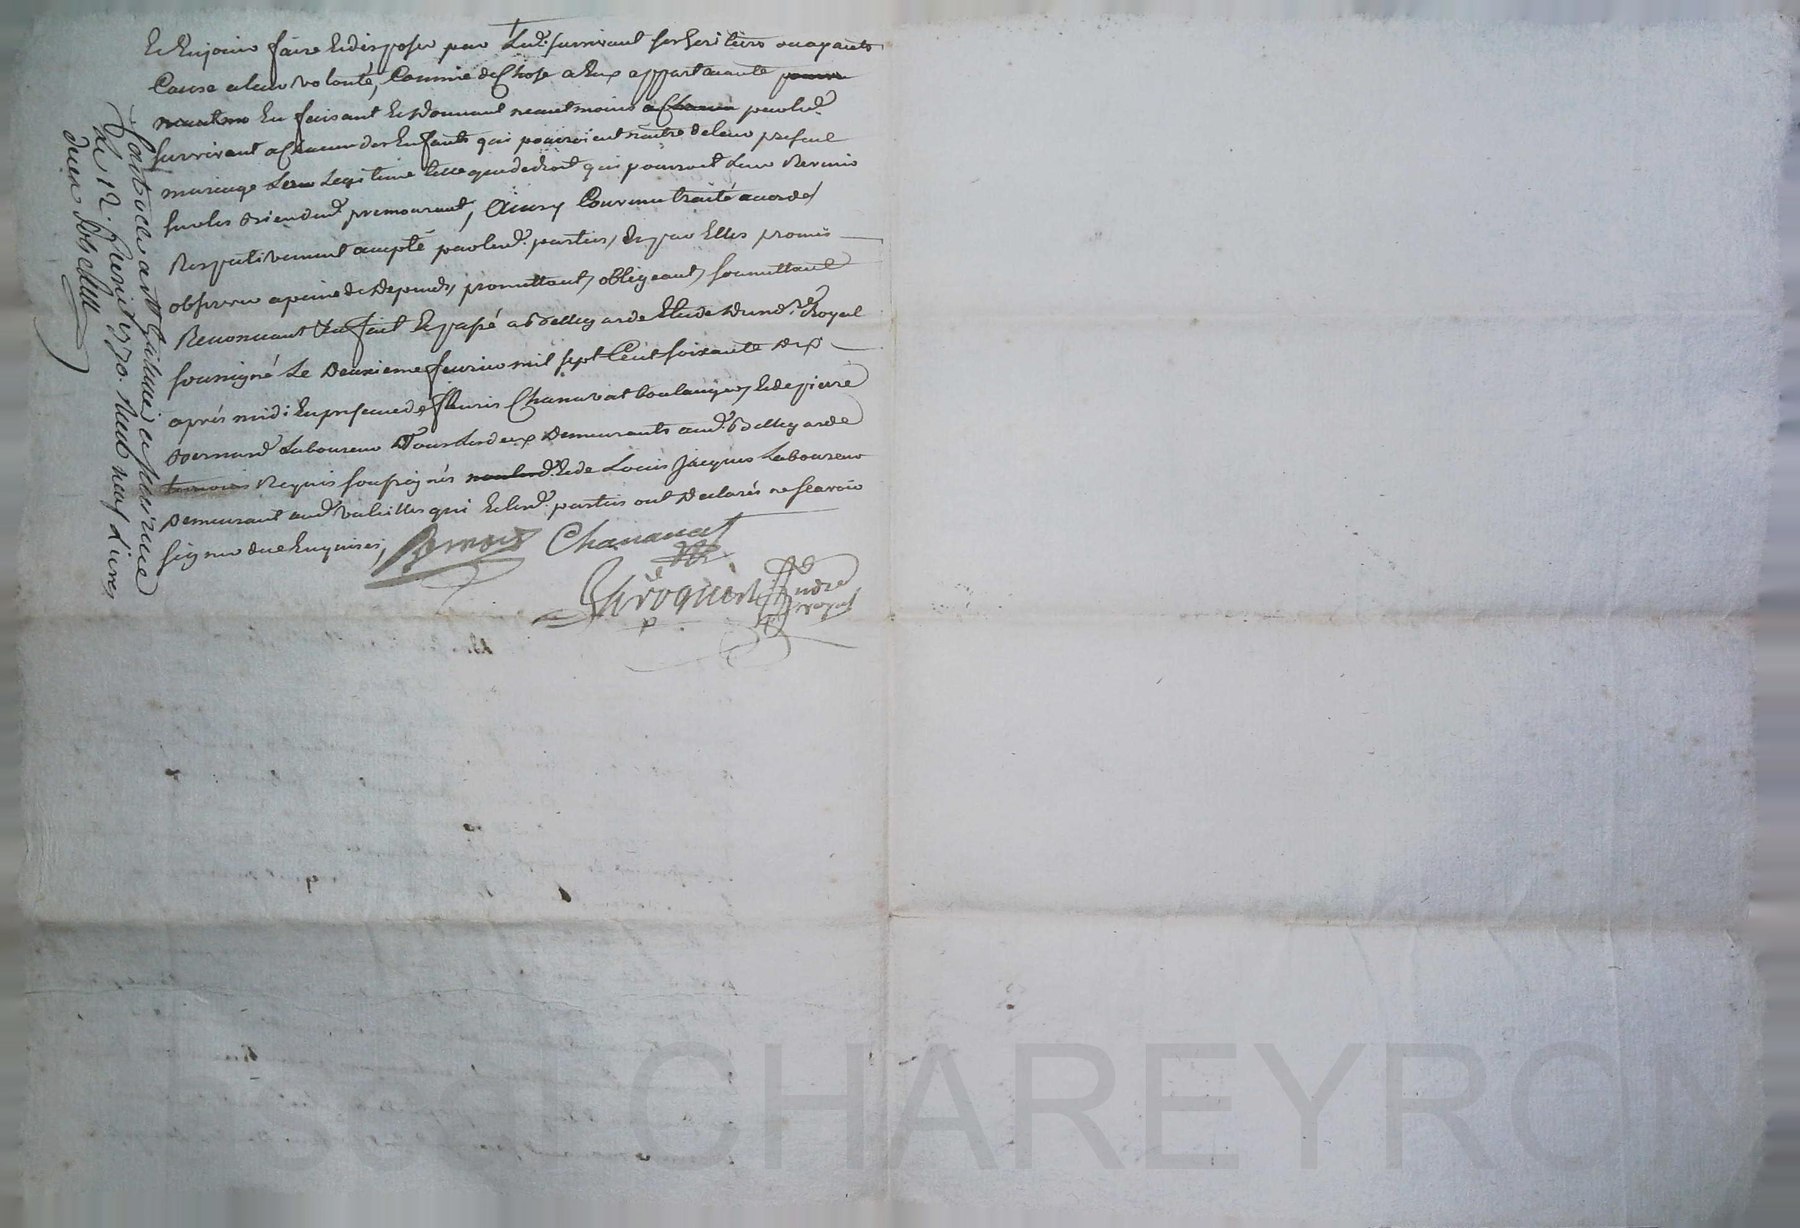 Et En jouir faire Et disposer par Led. survivant ses heritiers ou ayants
Cause a leur volonté, Comme de Chose a Eux appartenante pourvu
neantmo En faisant Et Donnant neantmoins a Chacun par led.
survivant a Chacun des Enfants qui pourroient naitre de leur present
mariage Leur Legitime telle que de droit qui pourroit Leur Revenir
sur les biens dud. premourant, Ainsy Convenu traité accordé
Respectivement accepté par lesd. parties, Et par Elles promis
observer a peine de Depends, promettant, obligeant, soumettant
Renonceant &c fait Et passé a Bellegarde Etude du nore. Royal
soussigné Le Deuxieme fevrier mil sept Cent soixante Dix
aprés midi En presence de fleuris Chanavat boulanger, Et de pierre
Bernard Laboureur Tous Les deux Demeurants aud. Bellegarde
temoins Requis soussignés Et de Louis Jacques Laboureur
Demeurant aud. qui Et lesd. parties ont Declarés ne sçavoir
signer de ce Enquis;
Chanavat
nore
royal
le 12 fevrier 1770. Reçu neuf Livres